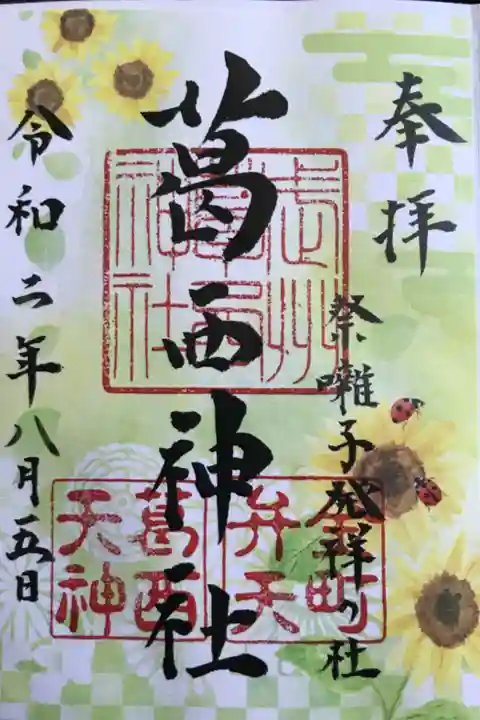 奉拝
祭囃子発祥の社
葛西神社
令和二年八月五日
葛西
天神
弁天